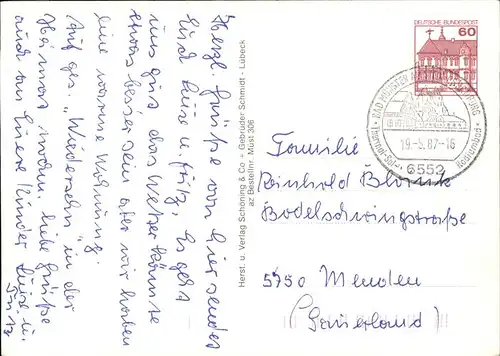 Herzl. Grüße von hier senden
Euch Luise u. Fritz, Es geht
uns gut das Wetter könnte
etwas besser sein aber wir haben
eine warme Wohnung.
Auf ges. "Wiedersehn" in der
Heimat wollen liebe Grüße
auch an Eure Kinder Luise u.
Fritz
Herst. u. Verlag Schöning & Co + Gebrüder Schmidt - Lübeck
az Bestellnr. Müst 306
DEUTSCHE BUNDESPOST
60
BAD MÜNSTER
19.-5.87-16
6552
Familie
Reinhold
Bodelschwingstraße
5750 Menden
(Sauerland)